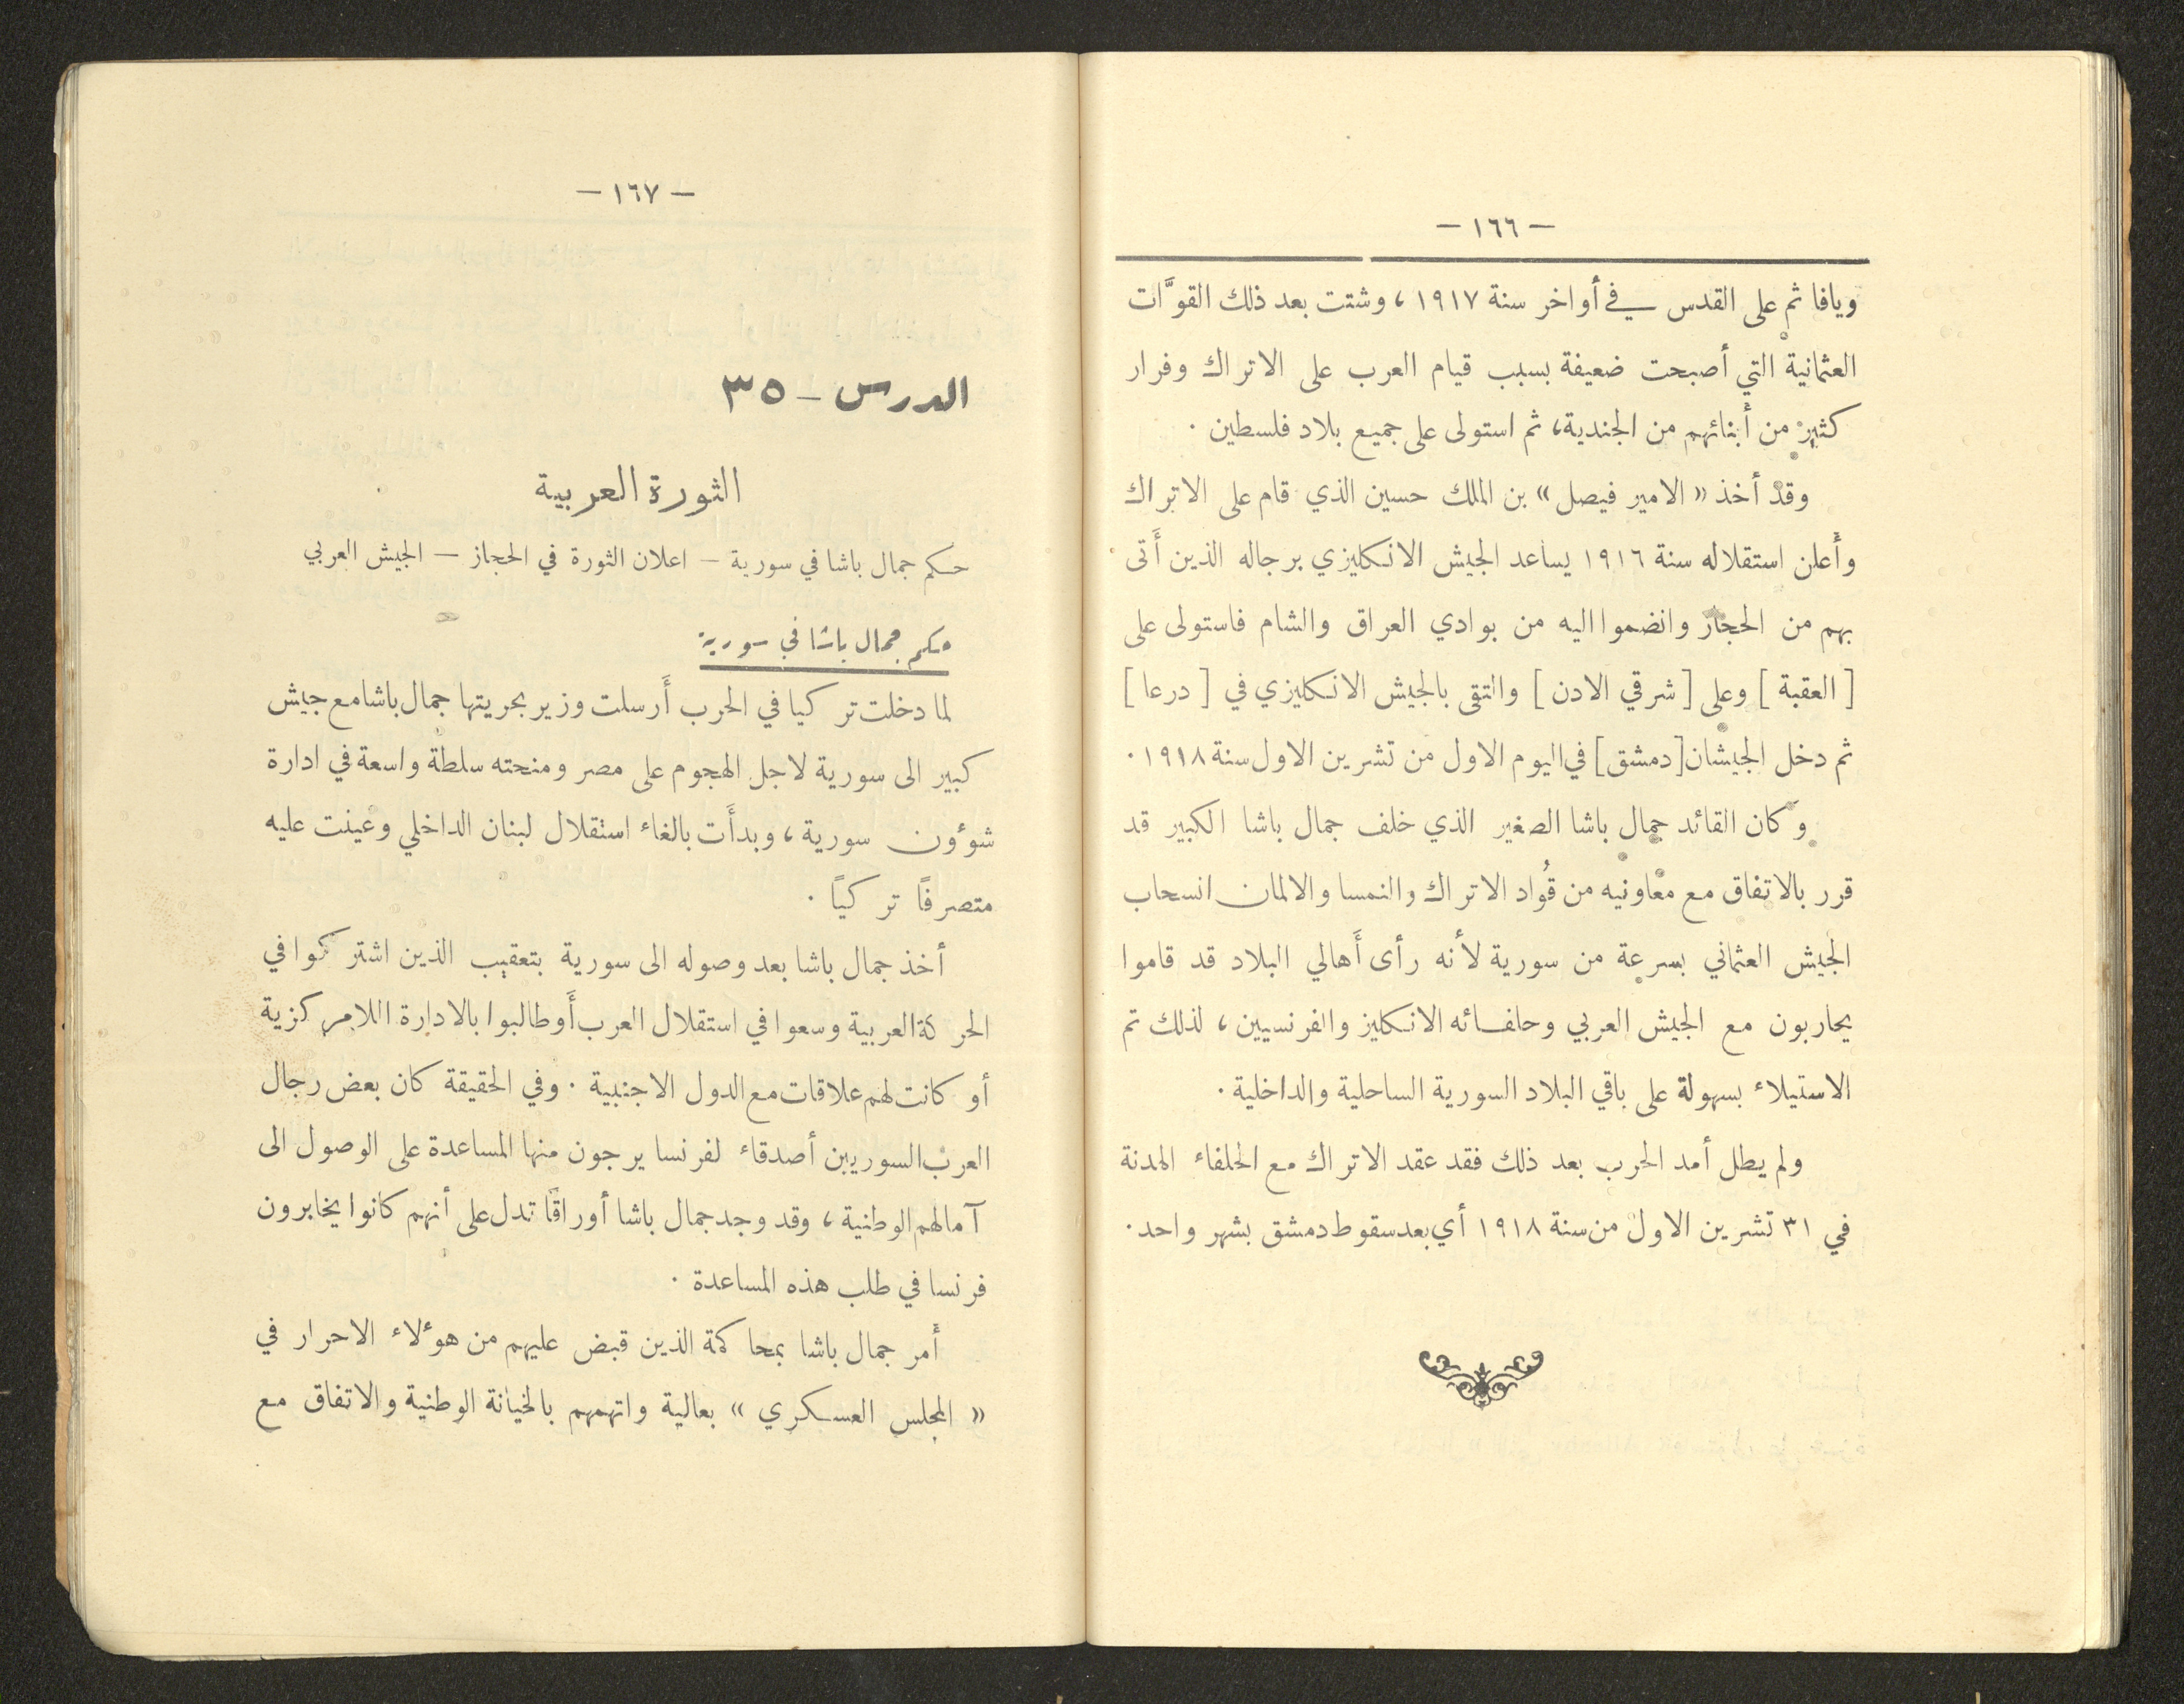 — ١٦٦ —
ويافا ثم على القدس في أواخر سنة ١٩١٧ ، وشتت بعد ذلك القوَّات
العثمانية التي أصبحت ضعيفة بسبب قيام العرب على الاتراك وفرار
كثير من أبنائهم من الجندية، ثم استولى على جميع بلاد فلسطين .
وقد أخذ « الامير فيصل » بن الملك حسين الذي قام على الاتراك
وأعلن استقلاله سنة ١٩١٦ يساعد الجيش الانكليزي برجاله الذين أَتى
بهم من الحجاز وانضموا اليه من بوادي العراق والشام فاستولى على
[ العقبة ] وعلى [ شرقي الادن ] والتقى بالجيش الانكليزي في [ درعا ]
ثم دخل الجيشان [دمشق] في اليوم الاول من تشرين الاول سنة ١٩١٨ .
وكان القائد جمال باشا الصغير الذي خلف جمال باشا الكبير قد
قرر بالاتفاق مع معاونيه من قُواد الاتراك والنمسا والالمان انسحاب
الجيش العثماني بسرعة من سورية لأنه رأى أَهالي البلاد قد قاموا
يحاربون مع الجيش العربي وحلفائه الانكليز والفرنسيين ، لذلك تم
الاستيلاء بسهولة على باقي البلاد السورية الساحلية والداخلية .
ولم يطل أمد الحرب بعد ذلك فقد عقد الاتراك مع الحلفاء الهدنة
في ٣١ تشرين الاول من سنة ١٩١٨ أي بعد سقوط دمشق بشهر واحد .
— ١٦٧ —
الدرس - ٣٥
الثورة العربية
حكم جمال باشا في سورية — اعلان الثورة في الحجاز — الجيش العربي
حكم جمال باشا في سورية
لما دخلت تركيا في الحرب أَرسلت وزير بحريتها جمال باشا مع جيش
كبير الى سورية لاجل الهجوم على مصر ومنحته سلطة واسعة في ادارة
شوؤون سورية ، وبدأَت بالغاء استقلال لبنان الداخلي وعينت عليه
متصرفًا تركيًا .
أخذ جمال باشا بعد وصوله الى سورية بتعقيب الذين اشتركوا في
الحركة العربية وسعوا في استقلال العرب أَو طالبوا بالادارة اللامركزية
أو كانت لهم علاقات مع الدول الاجنبية . وفي الحقيقة كان بعض رجال
العرب السوريين أصدقاء لفرنسا يرجون منها المساعدة على الوصول الى
آمالهم الوطنية ، وقد وجد جمال باشا أوراقًا تدل على أنهم كانوا يخابرون
فرنسا في طلب هذه المساعدة .
أَمر جمال باشا بمحاكمة الذين قبض عليهم من هوءلاء الاحرار في
« المجلس العسكري » بعالية واتهمهم بالخيانة الوطنية والاتفاق مع